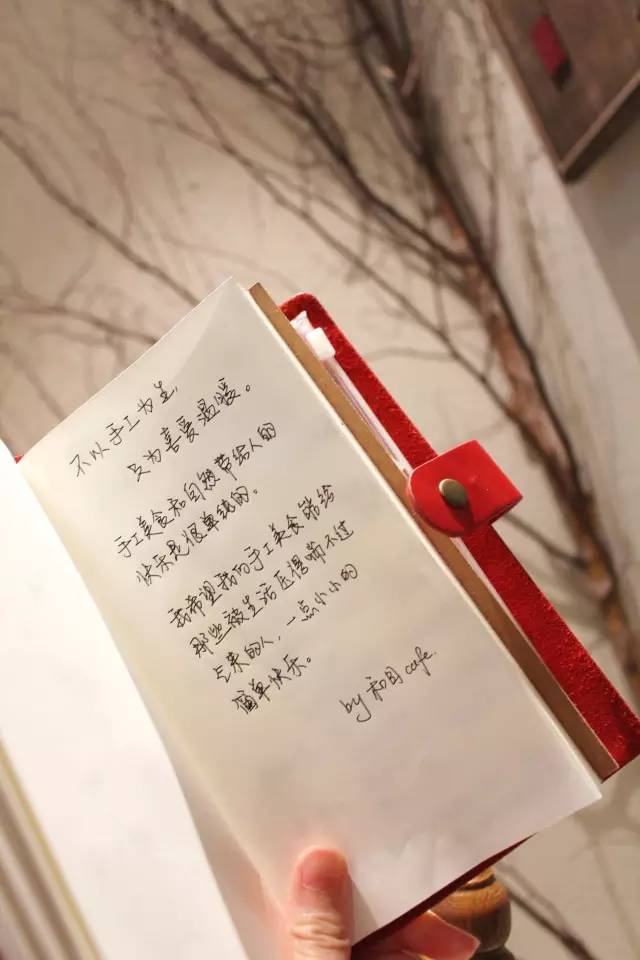 不以手工为生,
只为喜爱温暖。
手工美食和自娱带给人的
快乐是很单纯的。
我希望我的手工美食能给
那些被生活压得喘不过
气来的人,一点小小的
简单快乐。
by 和目 cafe.